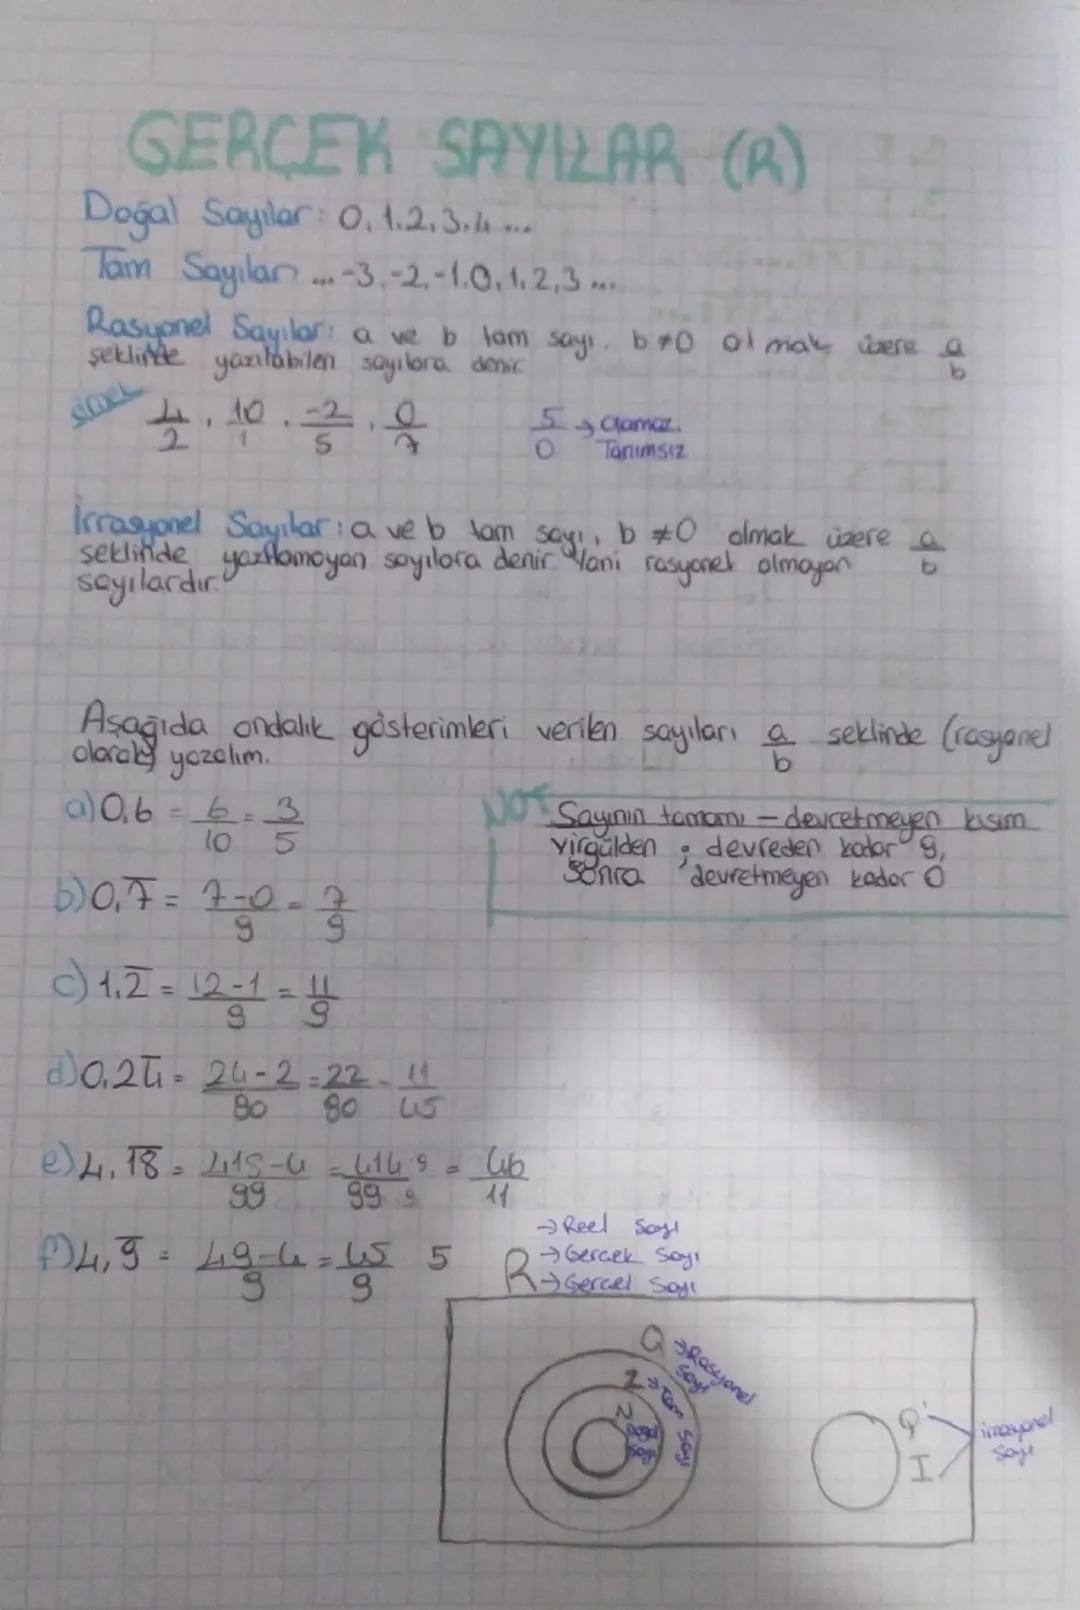 GERÇEK SAYILAR (R)
Doğal Sayılar: 0, 1, 2, 3, 4 ...
Tam Sayılar: ... -3, -2, -1, 0, 1, 2, 3 ...
Rasyonel Sayılar: a ve b tam sayı, b≠0 olmak üzere a/b
şeklinde yazılabilen sayılara denir.
örnek 4/2, 10/1, -2/5, 0/7
5/0 → olamaz. Tanımsız
İrrasyonel Sayılar: a ve b tam sayı, b ≠0 olmak üzere a/b
şeklinde yazılamayan sayılara denir. Yani rasyonel olmayan
sayılardır.
Aşağıda ondalık gösterimleri verilen sayıları a/b şeklinde (rasyonel
olarak) yazalım.
a) 0,6 = 6/10 = 3/5
NOT Sayının tamamı - devretmeyen kısım
virgülden sonra ; devreden kadar 9,
devretmeyen kadar 0
b) 0,7̅ = 7-0/9 = 7/9
c) 1,2̅ = 12-1/9 = 11/9
d) 0,24̅ = 24-2/90 = 22/90 = 11/45
e) 4,1̅8̅ = 418-4/99 = 414/99 :9/:9 = 46/11
f) 4,9̅ = 49-4/9 = 45/9 5
R → Reel Sayı
→ Gerçek Sayı
→ Gerçel Sayı
Q → Rasyonel sayı
Z → Tam sayı
N
Q' I irrasyonel sayı